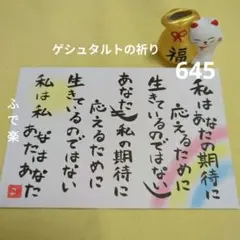 ゲシュタルトの祈り
645
ふで楽
福
私はあなたの期待に
応えるために
生きているのではない
あなたも私の期待に
応えるために
生きているのではない
私は私 あなたはあなた